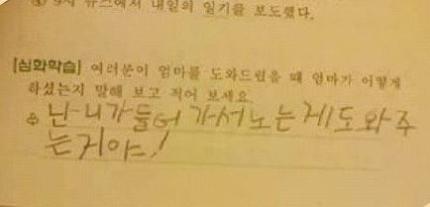 ④ 9시 뉴스에서 내일의 일기를 보도했다.
[심화학습] 여러분이 엄마를 도와드렸을 때 엄마가 어떻게
하셨는지 말해 보고 적어 보세요.
난 니가 들어 가서 노는게 도와주
는거야!